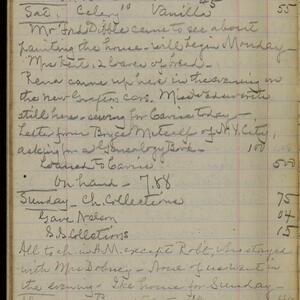 Sat. Celery 10 Vanilla 45 55
Mr Fred Dibble came to see about
painting the house - will begin Monday -
Mrs Kate - 2 loaves of bread -
Rena came up here in the evening on
the new Grafton cars. Miss Wadsworth
still here - sewing for Carrie today -
Letter from Bryce Metcalf of N.Y. City,
asking for a Geneology Book - 100
Loaned to Carrie 500
On hand - 7.88
Sunday - Ch. Collections 75
Gave Nelson 04
S.S. Collections 15
All to ch. in A.M. except Robt, who stayed
with Mrs Dobney - None of us went in
the evening - The home for Sunday -